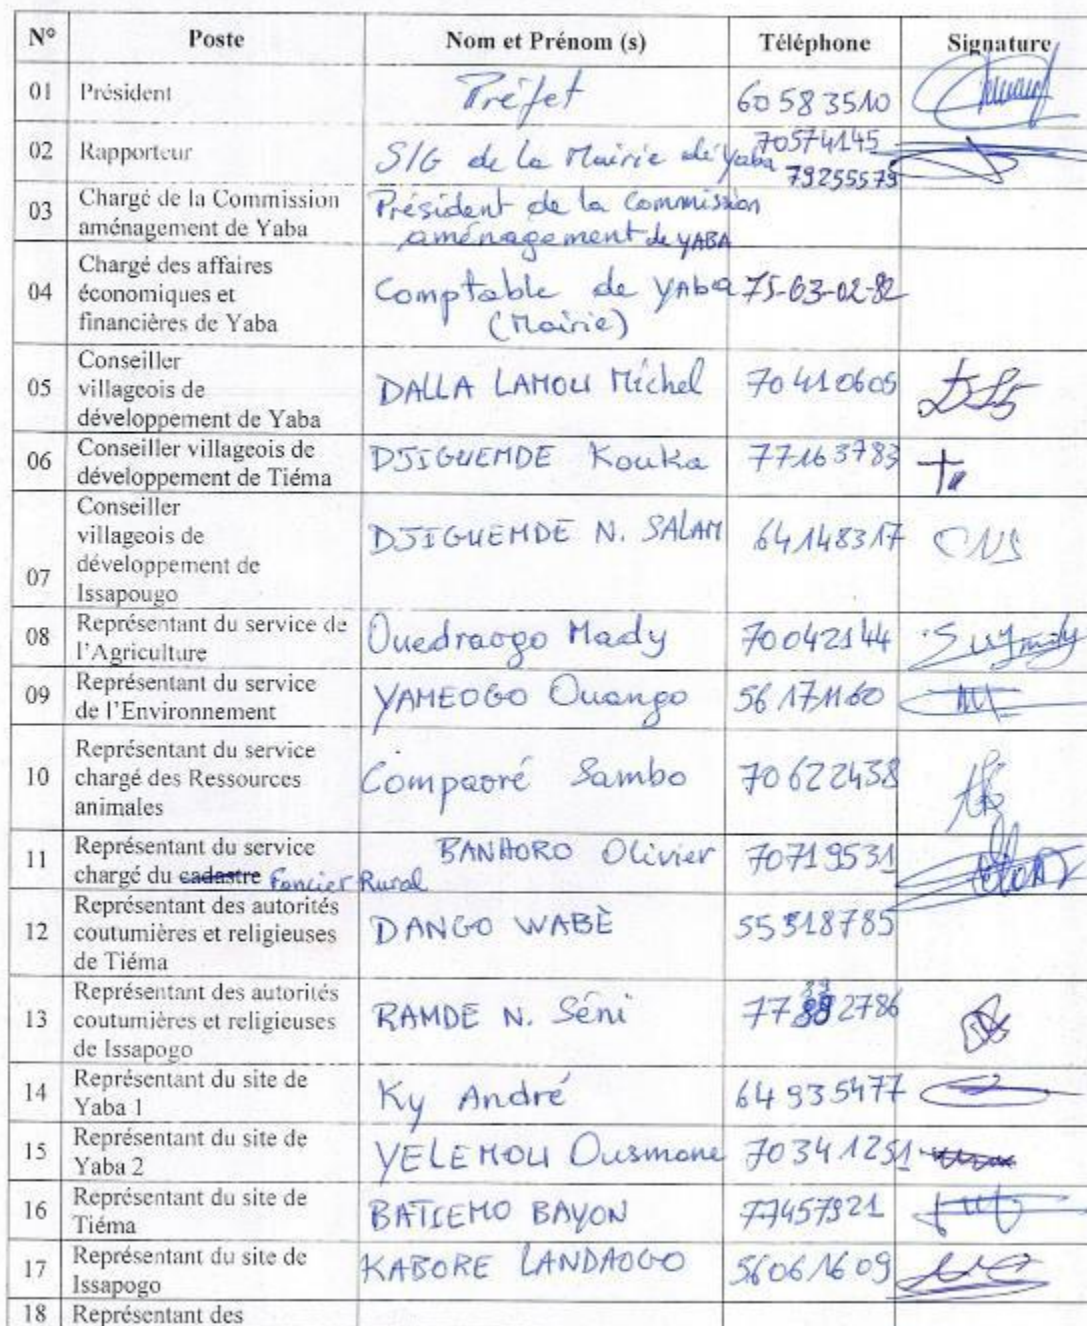 N° Poste Nom et Prénom (s) Téléphone Signature
01 Président Préfet 60 58 35 10
02 Rapporteur S/G de la Mairie de Yaba 70574145
79255579
03 Chargé de la Commission
aménagement de Yaba
Président de la Commission
aménagement de YABA
04 Chargé des affaires
économiques et
financières de Yaba
Comptable de YABA 75-63-02-82
(Mairie)
05 Conseiller
villageois de
développement de Yaba
DALLA LAMOU Michel 70410605
06 Conseiller villageois de
développement de Tiéma
DJIGUEMDE Kouka 77163783
07 Conseiller
villageois de
développement de
Issapougo
DJIGUEMDE N. SALAM 64148317
08 Représentant du service de
l'Agriculture
Ouedraogo Mady 70042144
09 Représentant du service
de l'Environnement
YAMEOGO Ouango 56171160
10 Représentant du service
chargé des Ressources
animales
Compaoré Sambo 70622438
11 Représentant du service
chargé du cadastre Foncier Rural
BANHORO Olivier 70719531
12 Représentant des autorités
coutumières et religieuses
de Tiéma
DANGO WABÈ 55318785
13 Représentant des autorités
coutumières et religieuses
de Issapogo
RAMDE N. Séni
14 Représentant du site de
Yaba 1
Ky André 64935477
15 Représentant du site de
Yaba 2
YELEMOU Ousmane 70341251
16 Représentant du site de
Tiéma
BATIEMO BAYON 77457921
17 Représentant du site de
Issapogo
KABORE LANDAOGO 56061609
18 Représentant des